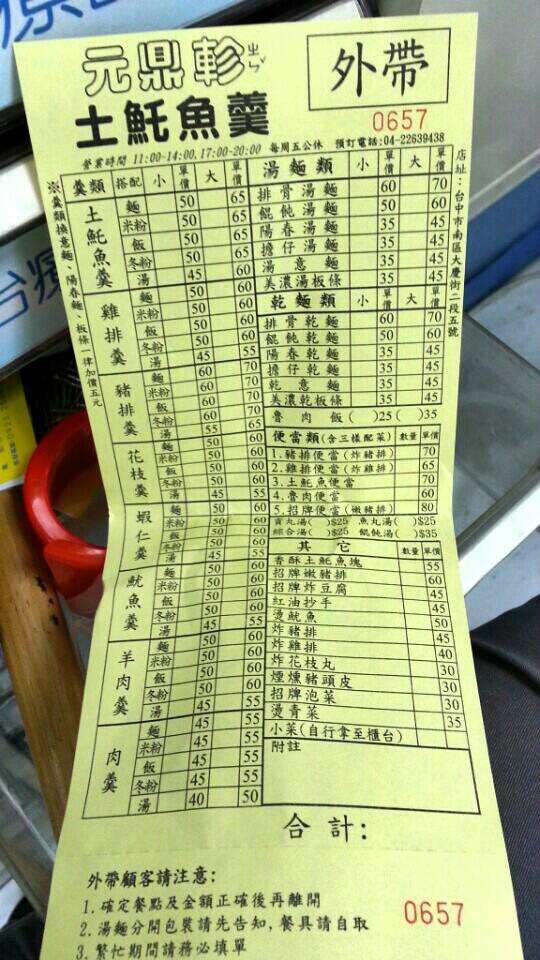 元鼎軫 ㄓㄣˇ
土魠魚羹
外帶
0657
營業時間 11:00-14:00.17:00-20:00 每周五公休 預訂電話:04-22639438
店址:台中市南區大慶街二段五號
※羹類換意麵、陽春麵、板條一律加價五元
羹類 搭配 小 單價 大 單價
土魠魚羹
麵 50 65
米粉 50 65
飯 50 65
冬粉 50 65
湯 45 60
雞排羹
麵 50 60
米粉 50 60
飯 50 60
冬粉 50 60
湯 45 55
豬排羹
麵 60 70
米粉 60 70
飯 60 70
冬粉 60 70
湯 55 65
花枝羹
麵 50 60
米粉 50 60
飯 50 60
冬粉 50 60
湯 45 55
蝦仁羹
麵 50 60
米粉 50 60
飯 50 60
冬粉 50 60
湯 45 55
魷魚羹
麵 50 60
米粉 50 60
飯 50 60
冬粉 50 60
湯 45 55
羊肉羹
麵 50 60
米粉 50 60
飯 50 60
冬粉 50 60
湯 45 55
肉羹
麵 45 55
米粉 45 55
飯 45 55
冬粉 45 55
湯 40 50
湯麵類 小 單價 大 單價
排骨湯麵 60 70
餛飩湯麵 50 60
陽春湯麵 35 45
擔仔湯麵 35 45
湯意麵 35 45
美濃湯板條 35 45
乾麵類 小 單價 大 單價
排骨乾麵 60 70
餛飩乾麵 50 60
陽春乾麵 35 45
擔仔乾麵 35 45
乾意麵 35 45
美濃乾板條 35 45
魯肉飯 ( )25 ( )35
便當類(含三樣配菜) 數量 單價
1.豬排便當(炸豬排) 70
2.雞排便當(炸雞排) 65
3.土魠魚便當 70
4.魯肉便當 60
5.招牌便當(嫩豬排) 80
貢丸湯( )$25 魚丸湯( )$25
綜合湯( )$35 餛飩湯( )$35
其它 數量 單價
香酥土魠魚塊 55
招牌嫩豬排 60
招牌炸豆腐
紅油抄手
燙魷魚
炸豬排
炸雞排
炸花枝丸
煙燻豬頭皮
招牌泡菜
燙青菜
小菜(自行拿至櫃台)
附註
合計:
外帶顧客請注意:
1.確定餐點及金額正確後再離開
2.湯麵分開包裝請先告知,餐具請自取
3.繁忙期間請務必填單
0657